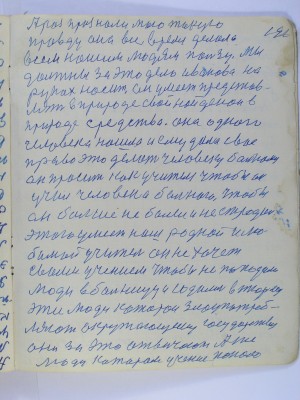 А раз признали мою такую
правду она все время делала
всем нашим людям пользу. Мы
должны за это дело Иванова на
руках носить он умеет представ-
лять в природе свои найденой в
природе средства. она одного
человека нашла и ему дала свое
право это делить человеку больному
он просит как учитель чтобы он
учил человека больного, чтобы
он больше не болел и не страдал
этого умеет наш родной и лю-
бимой учитель он не хочет
своим учением чтобы не попадали
люди в больницу и садили в тюрьму
эти люди которои злоупотреб-
ляют окружающему государству
они за это отвичают А те
люди которои учение